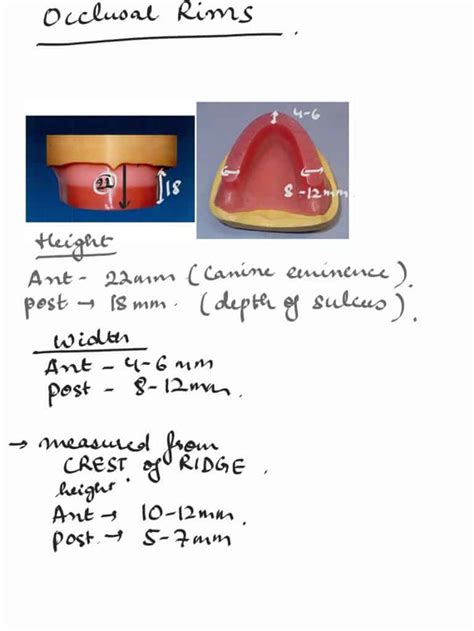 Occlusal Rims
4-6
22
18
8-12mm
Height
Ant - 22mm (Canine eminence).
post → 18mm. (depth of sulcus).
Width
Ant - 4-6 mm
post - 8-12mm.
→ measured from
CREST of RIDGE.
height.
Ant → 10-12mm.
post → 5-7mm